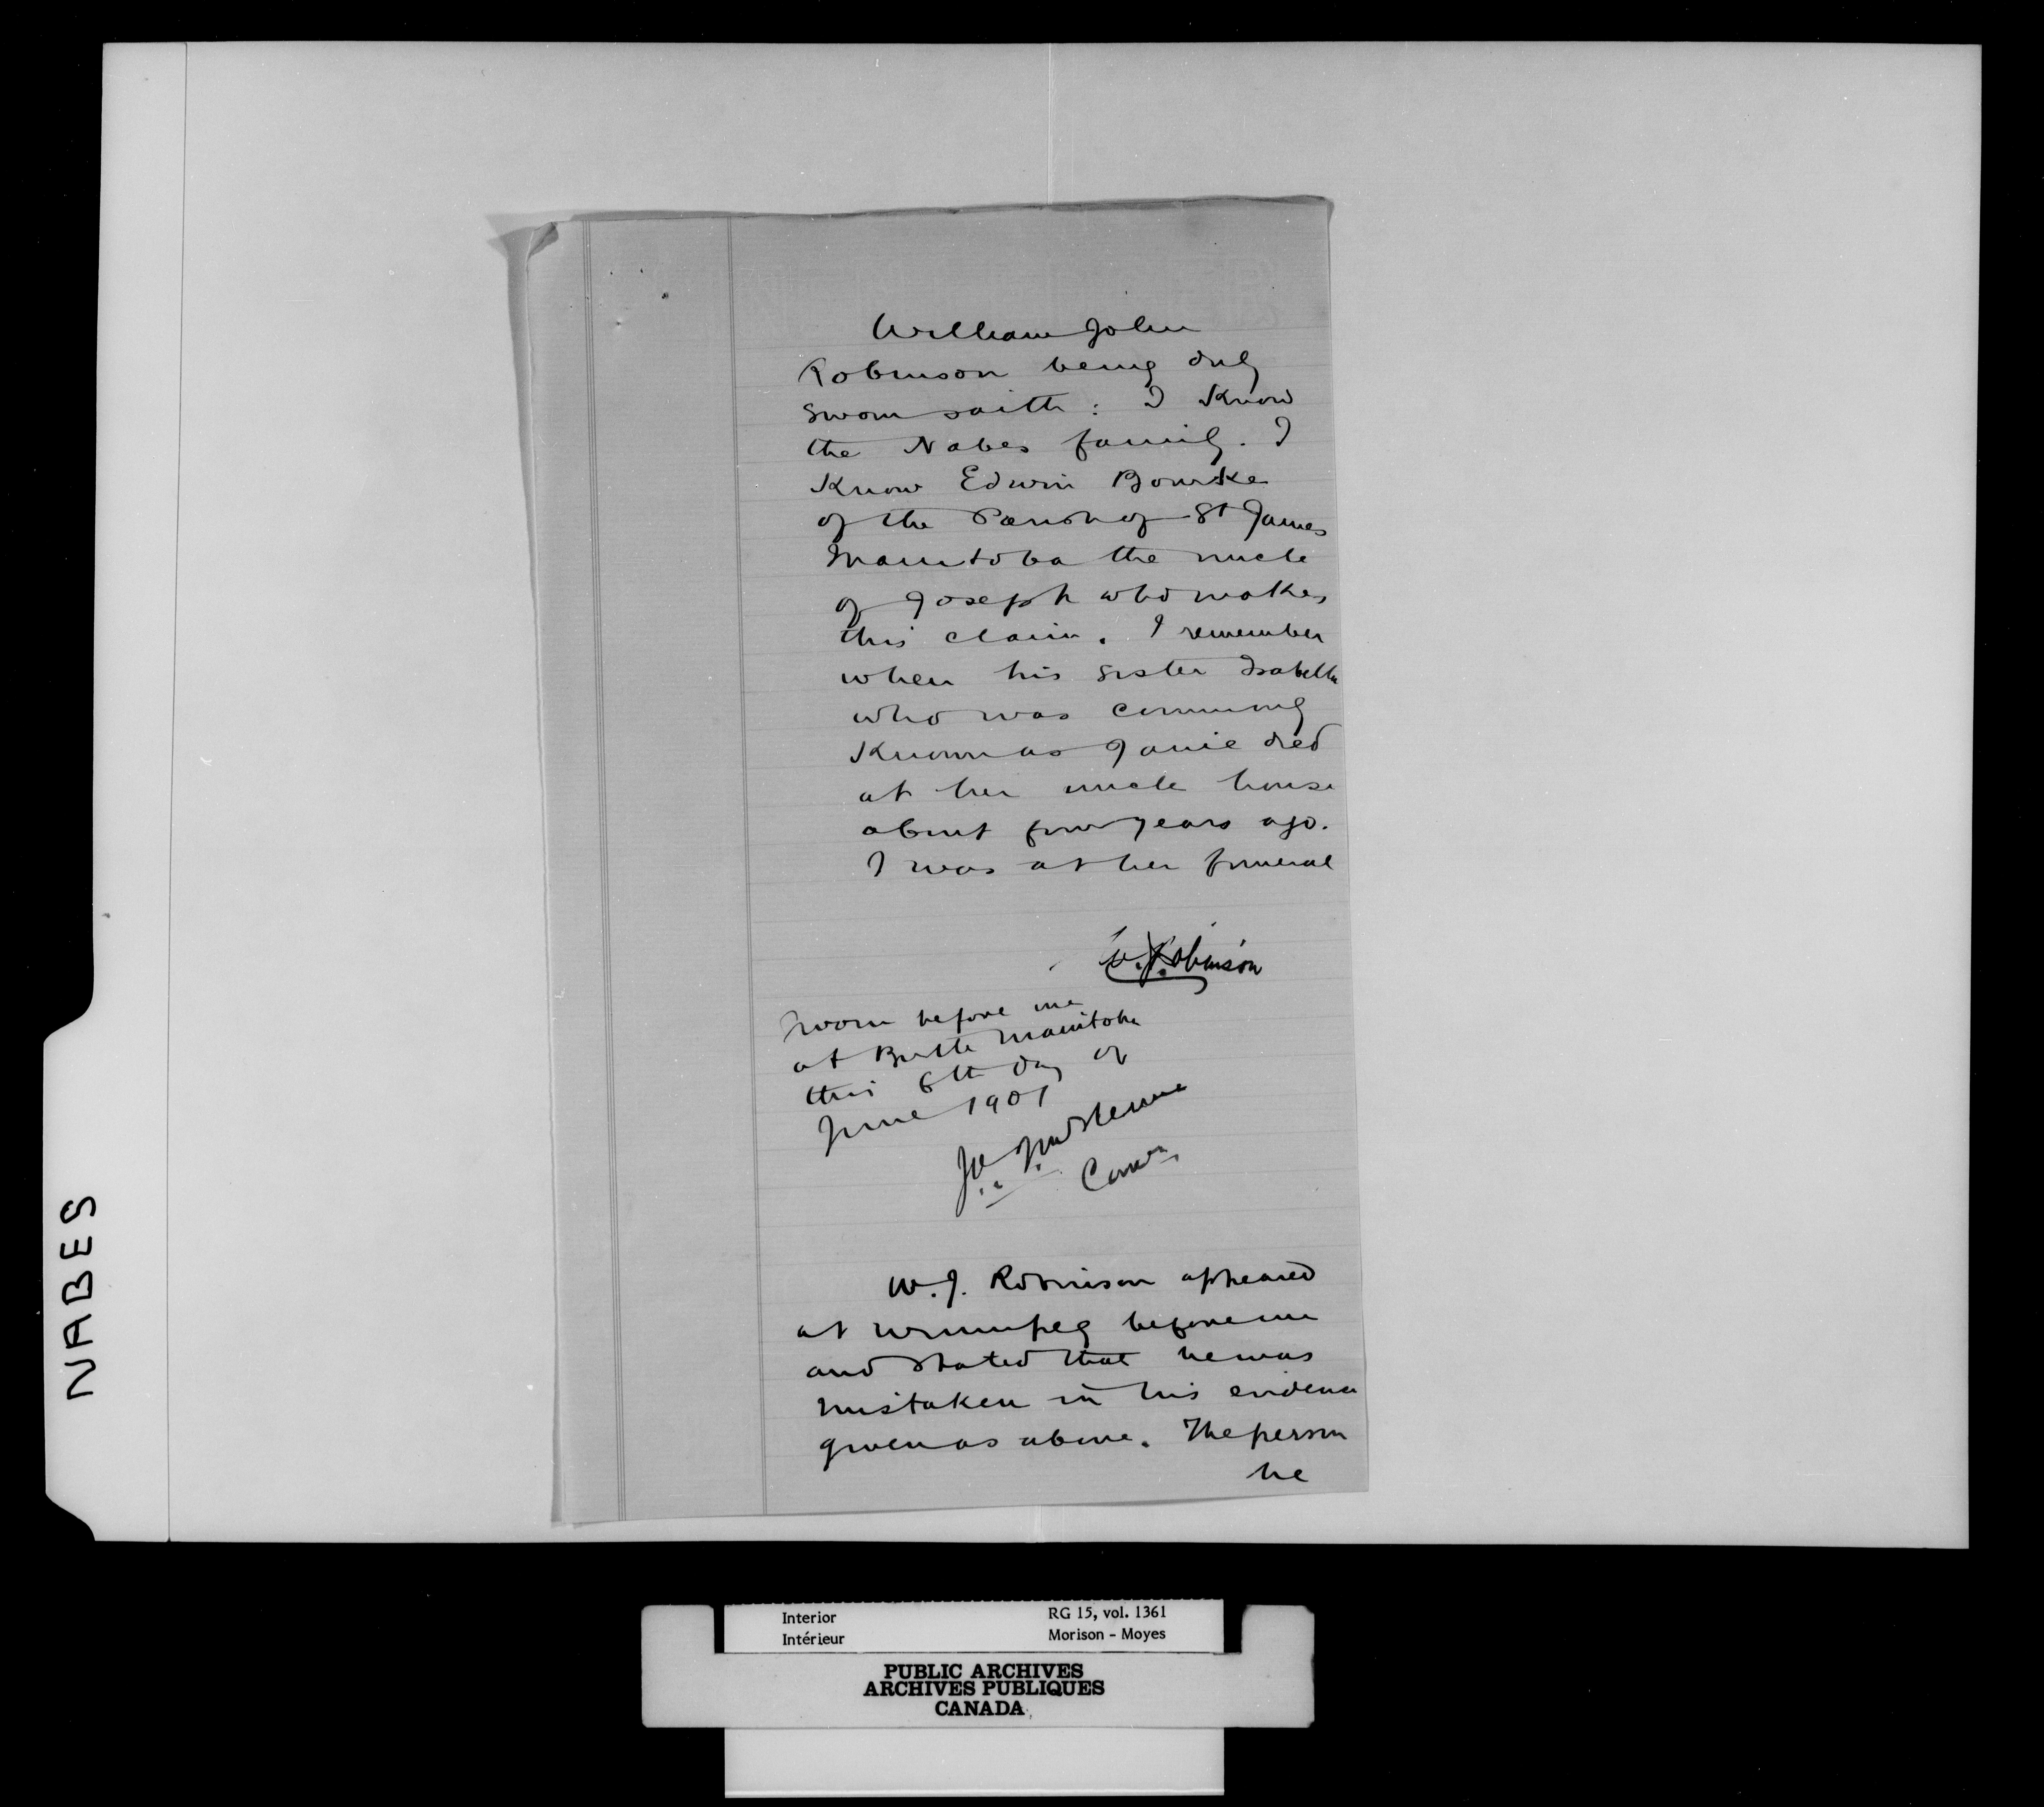 William John
Robinson being duly
sworn saith: I know
the Nabes family. I
Know Edwin Bourke
of the Parish of St James
Manitoba the uncle
of Joseph who makes
this claim. I remember
when his sister Isabella
who was commonly
Known as Janie died
at her uncle house
about four years ago.
I was at her funeral
W. J. Robinson
Sworn before me
at Manitoba
this 6th day of
June 1901
W. J. Robinson appeared
at Winnipeg before me
and stated that he was
mistaken in his evidence
given as above. The person
he
NABES
Interior
Intérieur
RG 15, vol. 1361
Morison - Moyes
PUBLIC ARCHIVES
ARCHIVES PUBLIQUES
CANADA